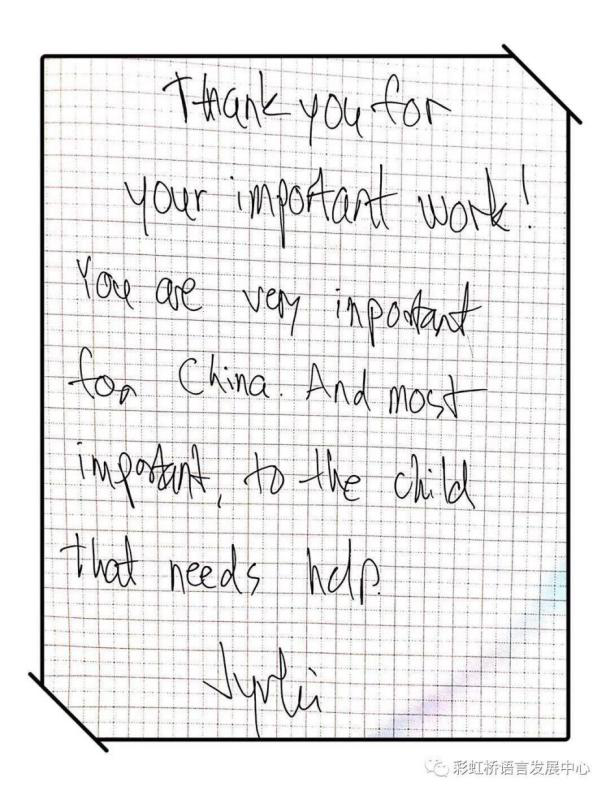 Thank you for
your important work!
You are very inportant
for China. And most
important, to the child
that needs help.
彩虹桥语言发展中心